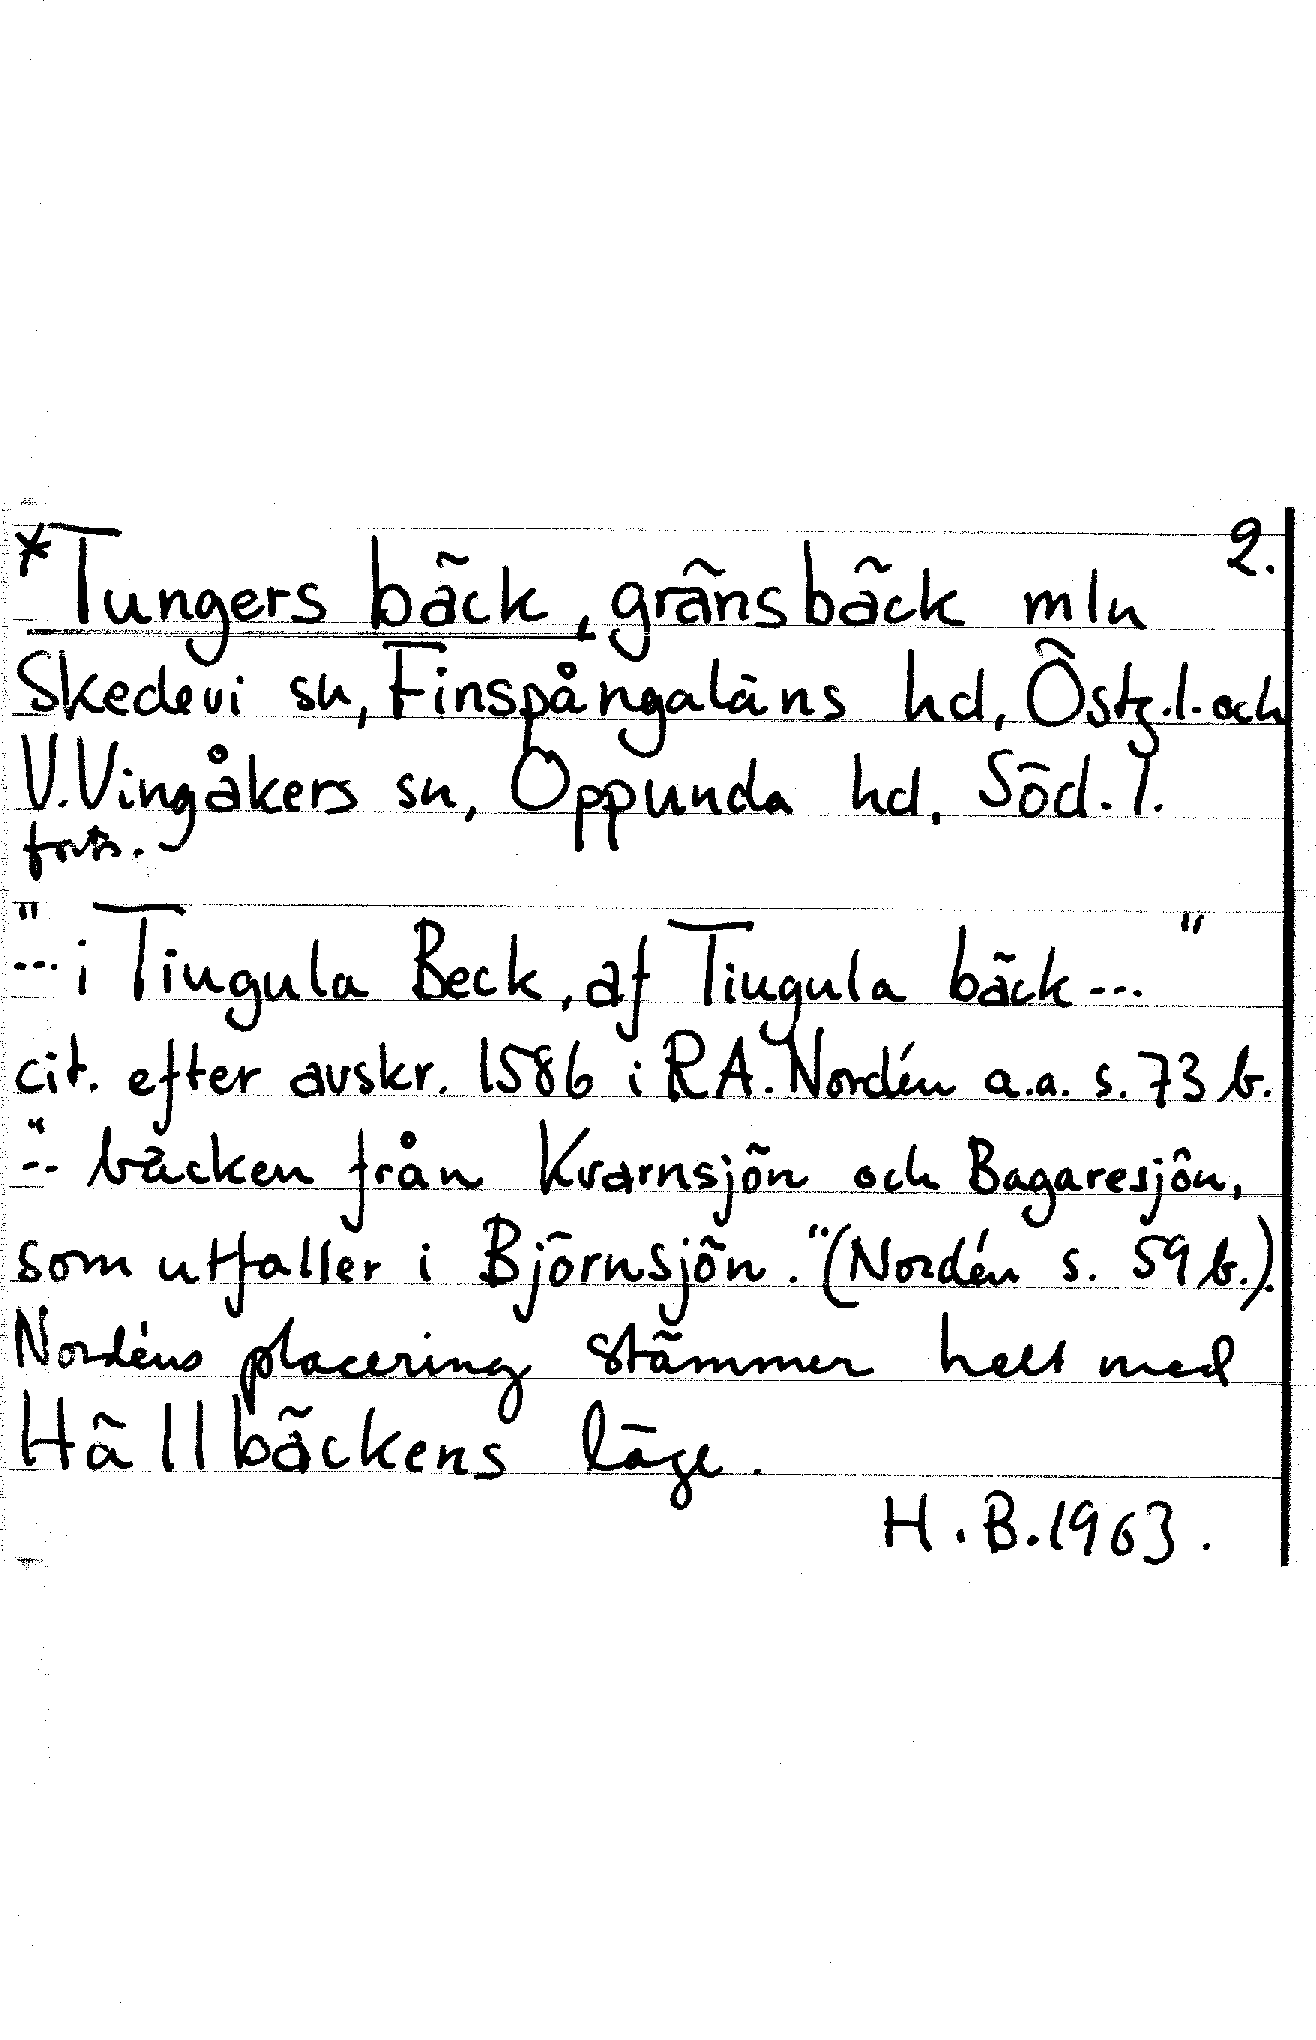 2.
*Tungers bäck, gränsbäck mln
Skedevi sn, Finspångaläns hd, Östg.l. och
V.Vingåkers sn, Oppunda hd, Söd. l.
forts.
"--- i Tiugula Beck, af Tiugula bäck ---"
cit. efter avskr. 1586 i RA. Nordén a.a. s. 73 b.
"-- bäcken från Kvarnsjön och Bagaresjön,
som utfaller i Björnsjön." (Nordén s. 59 b.).
Nordéns placering stämmer helt med
Hällbäckens läge.
H.B. 1963.